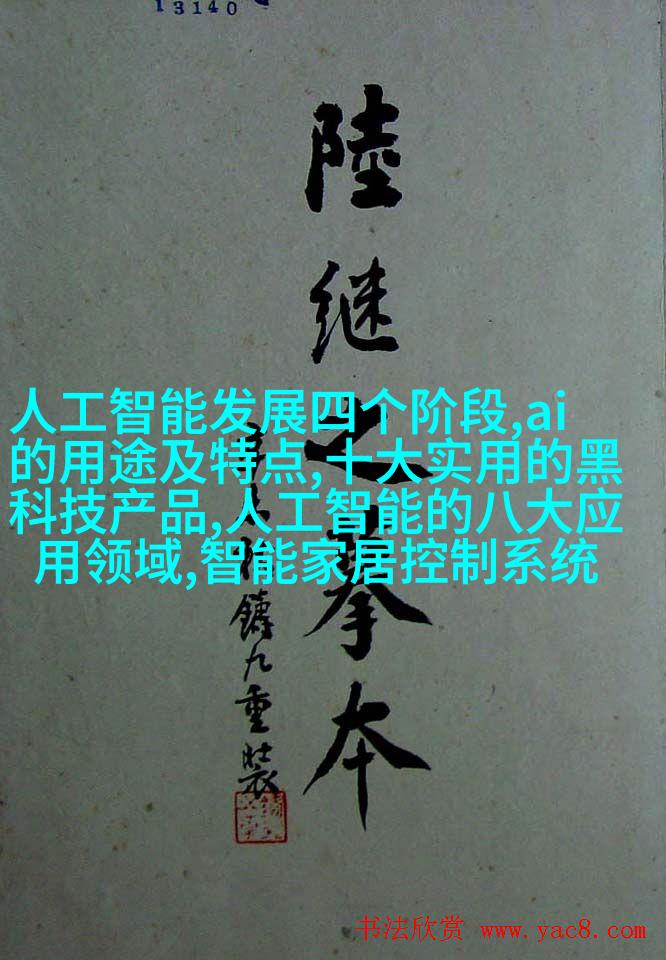 13140
陸继之摹本
鑄九重裝
人工智能发展四个阶段,ai
的用途及特点,十大实用的黑
科技产品,人工智能的八大应
用领域,智能家居控制系统
书法欣赏 www.yac8.com